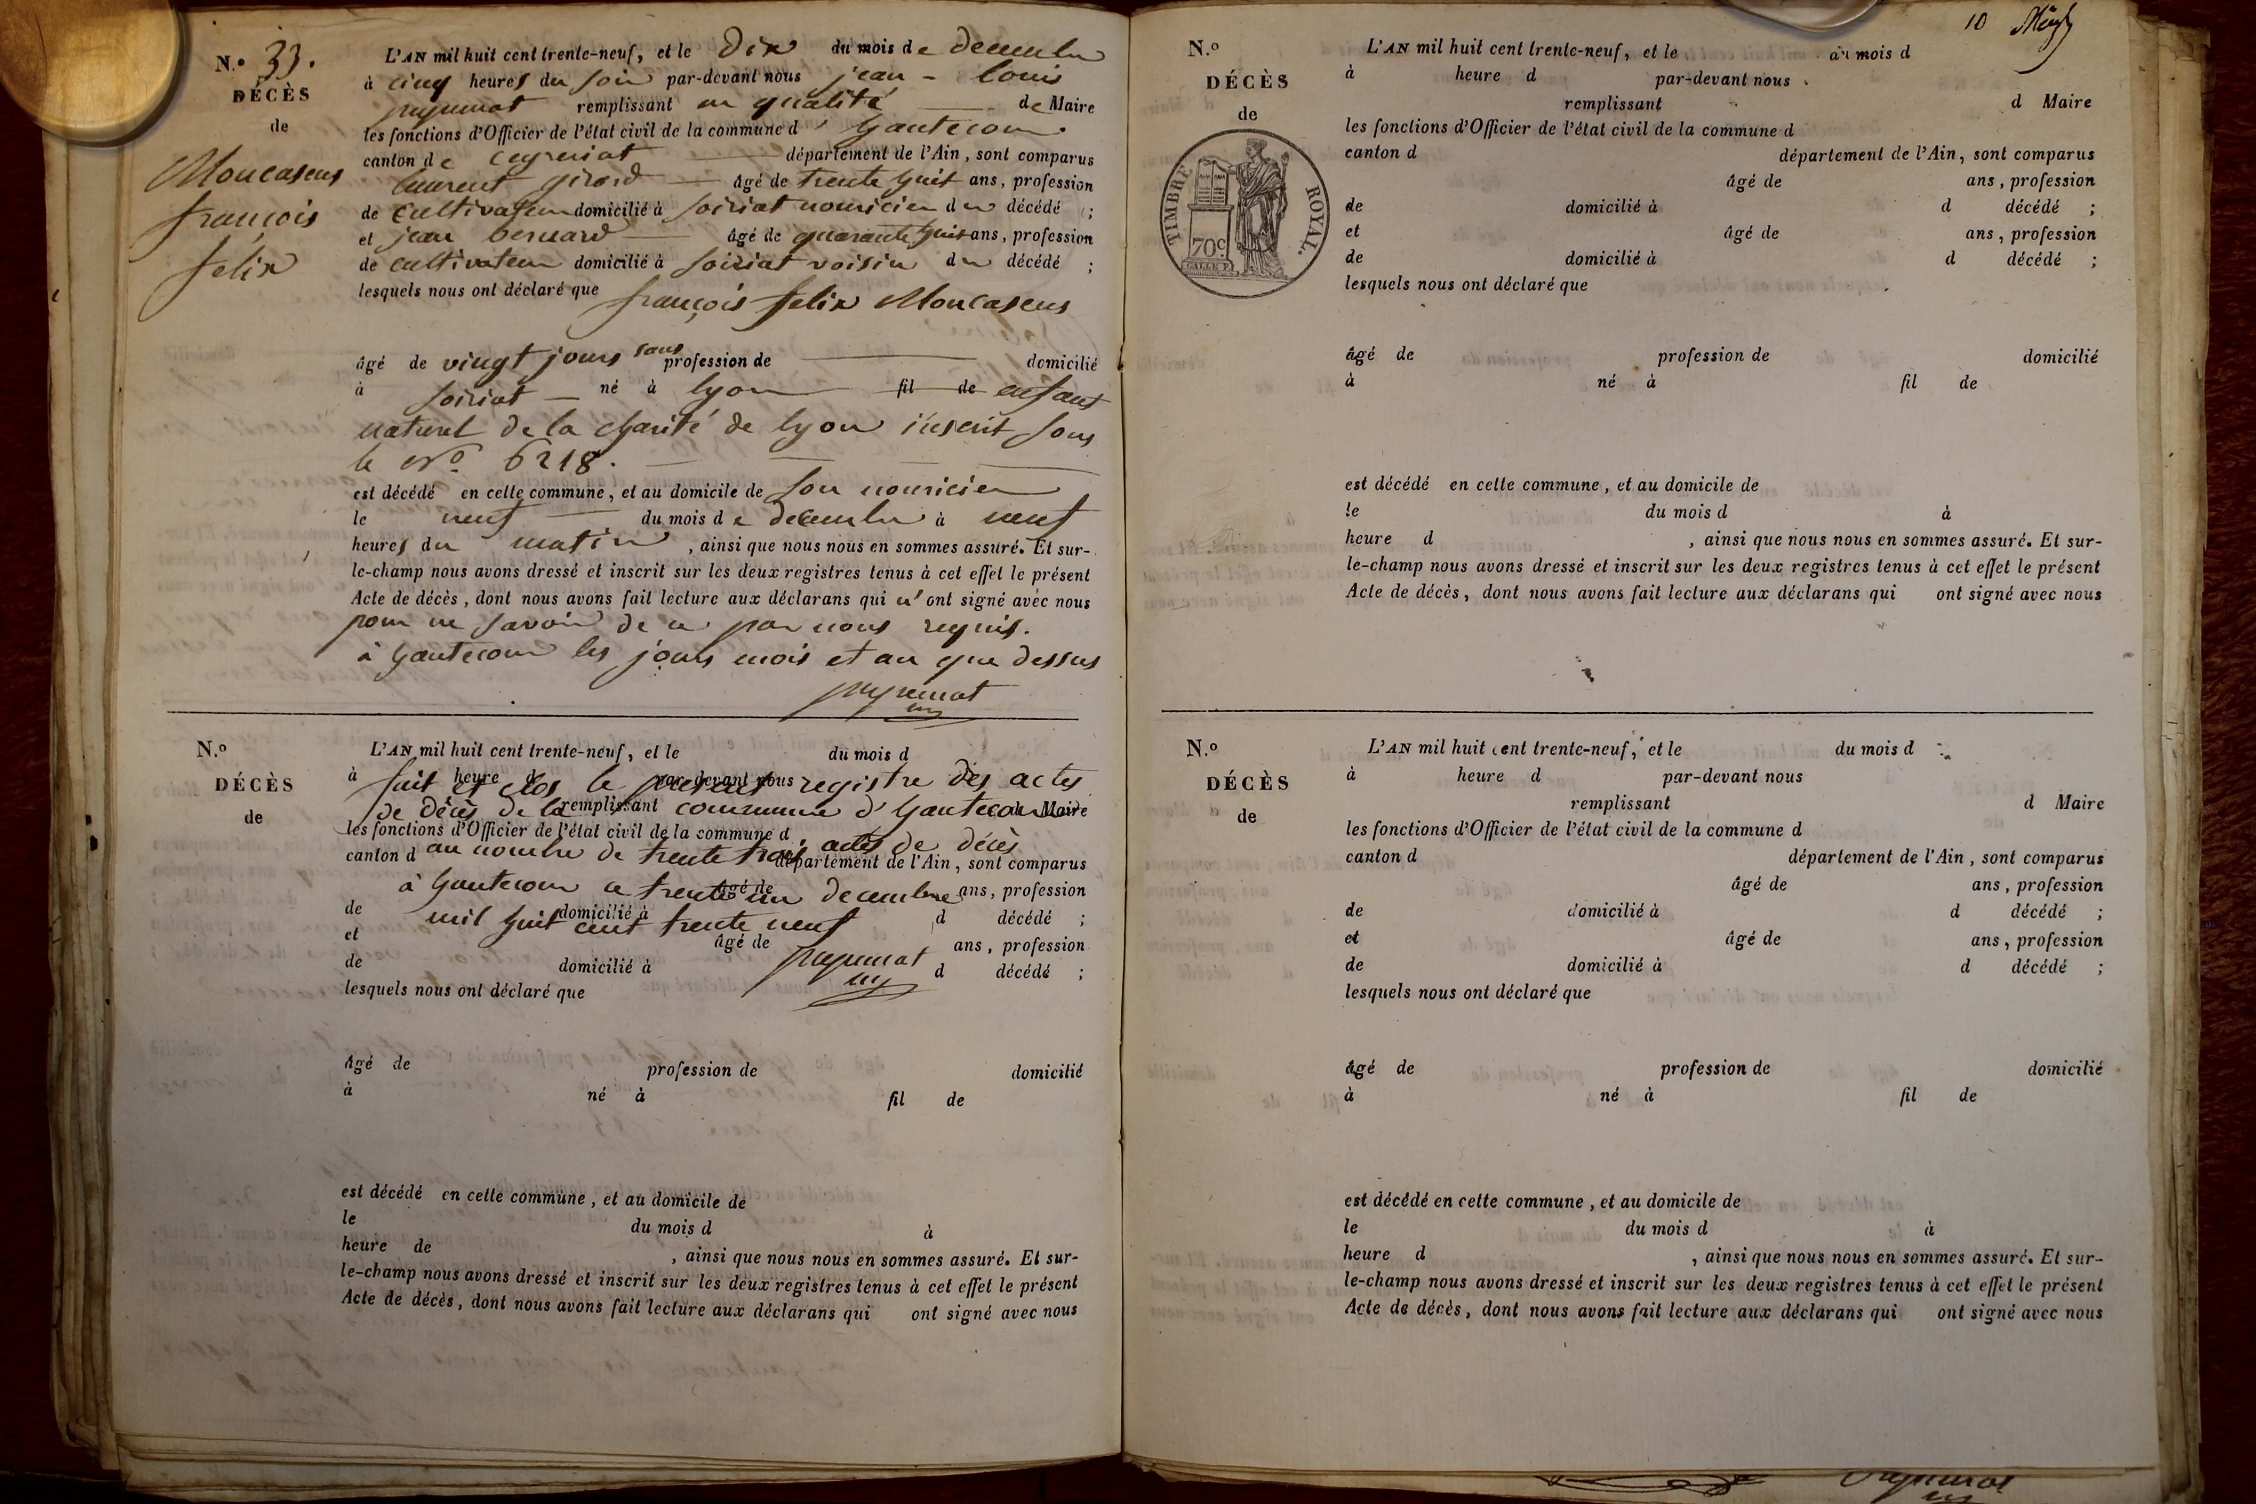 N.º 33.
DÉCÈS
de
Moncaseus
françois
felix
L'AN mil huit cent trente-neuf, et le Dix du mois de decembre
à cinq heures du soir par-devant nous jean - louis
puyemat remplissant en qualité de Maire
les fonctions d'Officier de l'état civil de la commune d' hautecour
canton de ceyzeriat département de l'Ain, sont comparus
laurent girard âgé de trente huit ans, profession
de cultivateur domicilié à soiriat nouricier du décédé ;
et jean bernard âgé de quarante huit ans, profession
de cultivateur domicilié à soiriat voisin du décédé ;
lesquels nous ont déclaré que françois felix Moncaseus
âgé de vingt jours sans profession de domicilié
à soiriat né à lyon fil de enfant
naturel de la charité de lyon inscrit sous
le Nº 6218.
est décédé en cette commune, et au domicile de son nouricier
le neuf du mois de decembre à neuf
heures du matin, ainsi que nous nous en sommes assuré. Et sur-
le-champ nous avons dressé et inscrit sur les deux registres tenus à cet effet le présent
Acte de décès, dont nous avons fait lecture aux déclarans qui n'ont signé avec nous
pour ne savoir de ce par nous requis.
à hautecour les jours mois et an que dessus
puyemat
N.º
DÉCÈS
de
L'AN mil huit cent trente-neuf, et le du mois d
à heure d par-devant nous
fait et clos le present registre des actes
remplissant d Maire
de décès de la commune d'hautecour
les fonctions d'Officier de l'état civil de la commune d
au nombre de trente trois actes de décès
canton d département de l'Ain, sont comparus
à hautecour ce trente un decembre
âgé de ans, profession
mil huit cent trente neuf
de domicilié à d décédé ;
et âgé de ans, profession
puyemat
de domicilié à d décédé ;
lesquels nous ont déclaré que
âgé de profession de domicilié
à né à fil de
est décédé en cette commune, et au domicile de
le du mois d à
heure de , ainsi que nous nous en sommes assuré. Et sur-
le-champ nous avons dressé et inscrit sur les deux registres tenus à cet effet le présent
Acte de décès, dont nous avons fait lecture aux déclarans qui ont signé avec nous
10
N.º
DÉCÈS
de
TIMBRE ROYAL.
70c
L'AN mil huit cent trente-neuf, et le du mois d
à heure d par-devant nous
remplissant d Maire
les fonctions d'Officier de l'état civil de la commune d
canton d département de l'Ain, sont comparus
âgé de ans, profession
de domicilié à d décédé ;
et âgé de ans, profession
de domicilié à d décédé ;
lesquels nous ont déclaré que
âgé de profession de domicilié
à né à fil de
est décédé en cette commune, et au domicile de
le du mois d à
heure d , ainsi que nous nous en sommes assuré. Et sur-
le-champ nous avons dressé et inscrit sur les deux registres tenus à cet effet le présent
Acte de décès, dont nous avons fait lecture aux déclarans qui ont signé avec nous
N.º
DÉCÈS
de
L'AN mil huit cent trente-neuf, et le du mois d
à heure d par-devant nous
remplissant d Maire
les fonctions d'Officier de l'état civil de la commune d
canton d département de l'Ain, sont comparus
âgé de ans, profession
de domicilié à d décédé ;
et âgé de ans, profession
de domicilié à d décédé ;
lesquels nous ont déclaré que
âgé de profession de domicilié
à né à fil de
est décédé en cette commune, et au domicile de
le du mois d à
heure d , ainsi que nous nous en sommes assuré. Et sur-
le-champ nous avons dressé et inscrit sur les deux registres tenus à cet effet le présent
Acte de décès, dont nous avons fait lecture aux déclarans qui ont signé avec nous